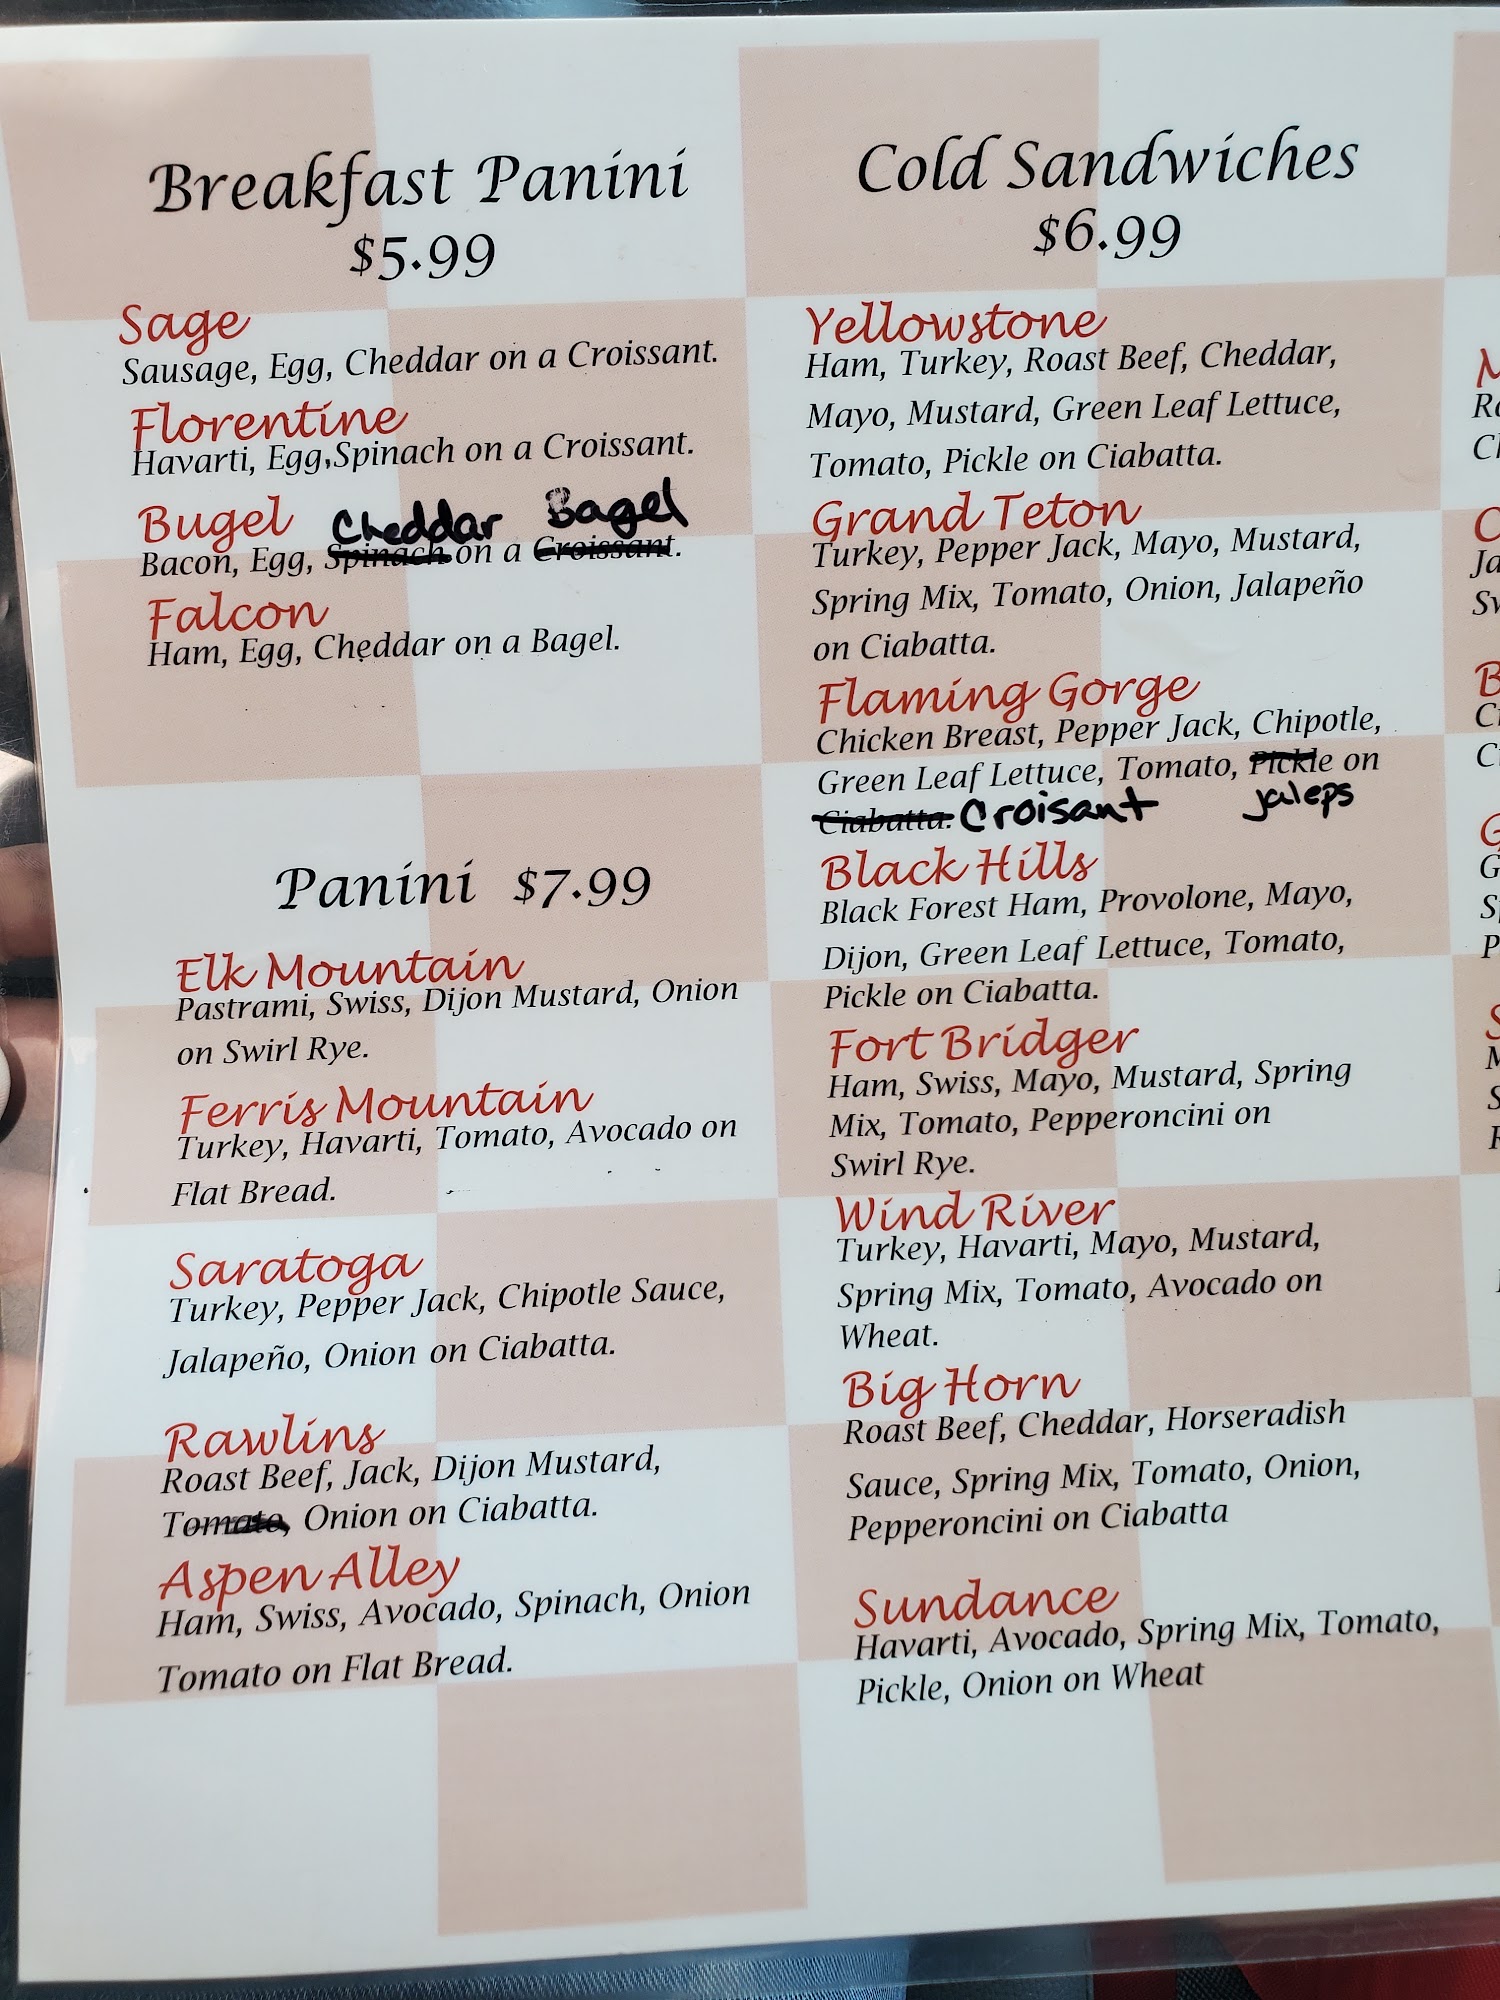 Breakfast Panini
$5.99
Sage
Sausage, Egg, Cheddar on a Croissant.
Florentine
Havarti, Egg, Spinach on a Croissant.
Bugel Cheddar Bagel
Bacon, Egg, Spinach on a Croissant.
Falcon
Ham, Egg, Cheddar on a Bagel.
Panini $7.99
Elk Mountain
Pastrami, Swiss, Dijon Mustard, Onion
on Swirl Rye.
Ferris Mountain
Turkey, Havarti, Tomato, Avocado on
Flat Bread.
Saratoga
Turkey, Pepper Jack, Chipotle Sauce,
Jalapeño, Onion on Ciabatta.
Rawlins
Roast Beef, Jack, Dijon Mustard,
Tomato, Onion on Ciabatta.
Aspen Alley
Ham, Swiss, Avocado, Spinach, Onion
Tomato on Flat Bread.
Cold Sandwiches
$6.99
Yellowstone
Ham, Turkey, Roast Beef, Cheddar,
Mayo, Mustard, Green Leaf Lettuce,
Tomato, Pickle on Ciabatta.
Grand Teton
Turkey, Pepper Jack, Mayo, Mustard,
Spring Mix, Tomato, Onion, Jalapeño
on Ciabatta.
Flaming Gorge
Chicken Breast, Pepper Jack, Chipotle,
Green Leaf Lettuce, Tomato, Pickle on
Ciabatta. Croisant jaleps
Black Hills
Black Forest Ham, Provolone, Mayo,
Dijon, Green Leaf Lettuce, Tomato,
Pickle on Ciabatta.
Fort Bridger
Ham, Swiss, Mayo, Mustard, Spring
Mix, Tomato, Pepperoncini on
Swirl Rye.
Wind River
Turkey, Havarti, Mayo, Mustard,
Spring Mix, Tomato, Avocado on
Wheat.
Big Horn
Roast Beef, Cheddar, Horseradish
Sauce, Spring Mix, Tomato, Onion,
Pepperoncini on Ciabatta
Sundance
Havarti, Avocado, Spring Mix, Tomato,
Pickle, Onion on Wheat